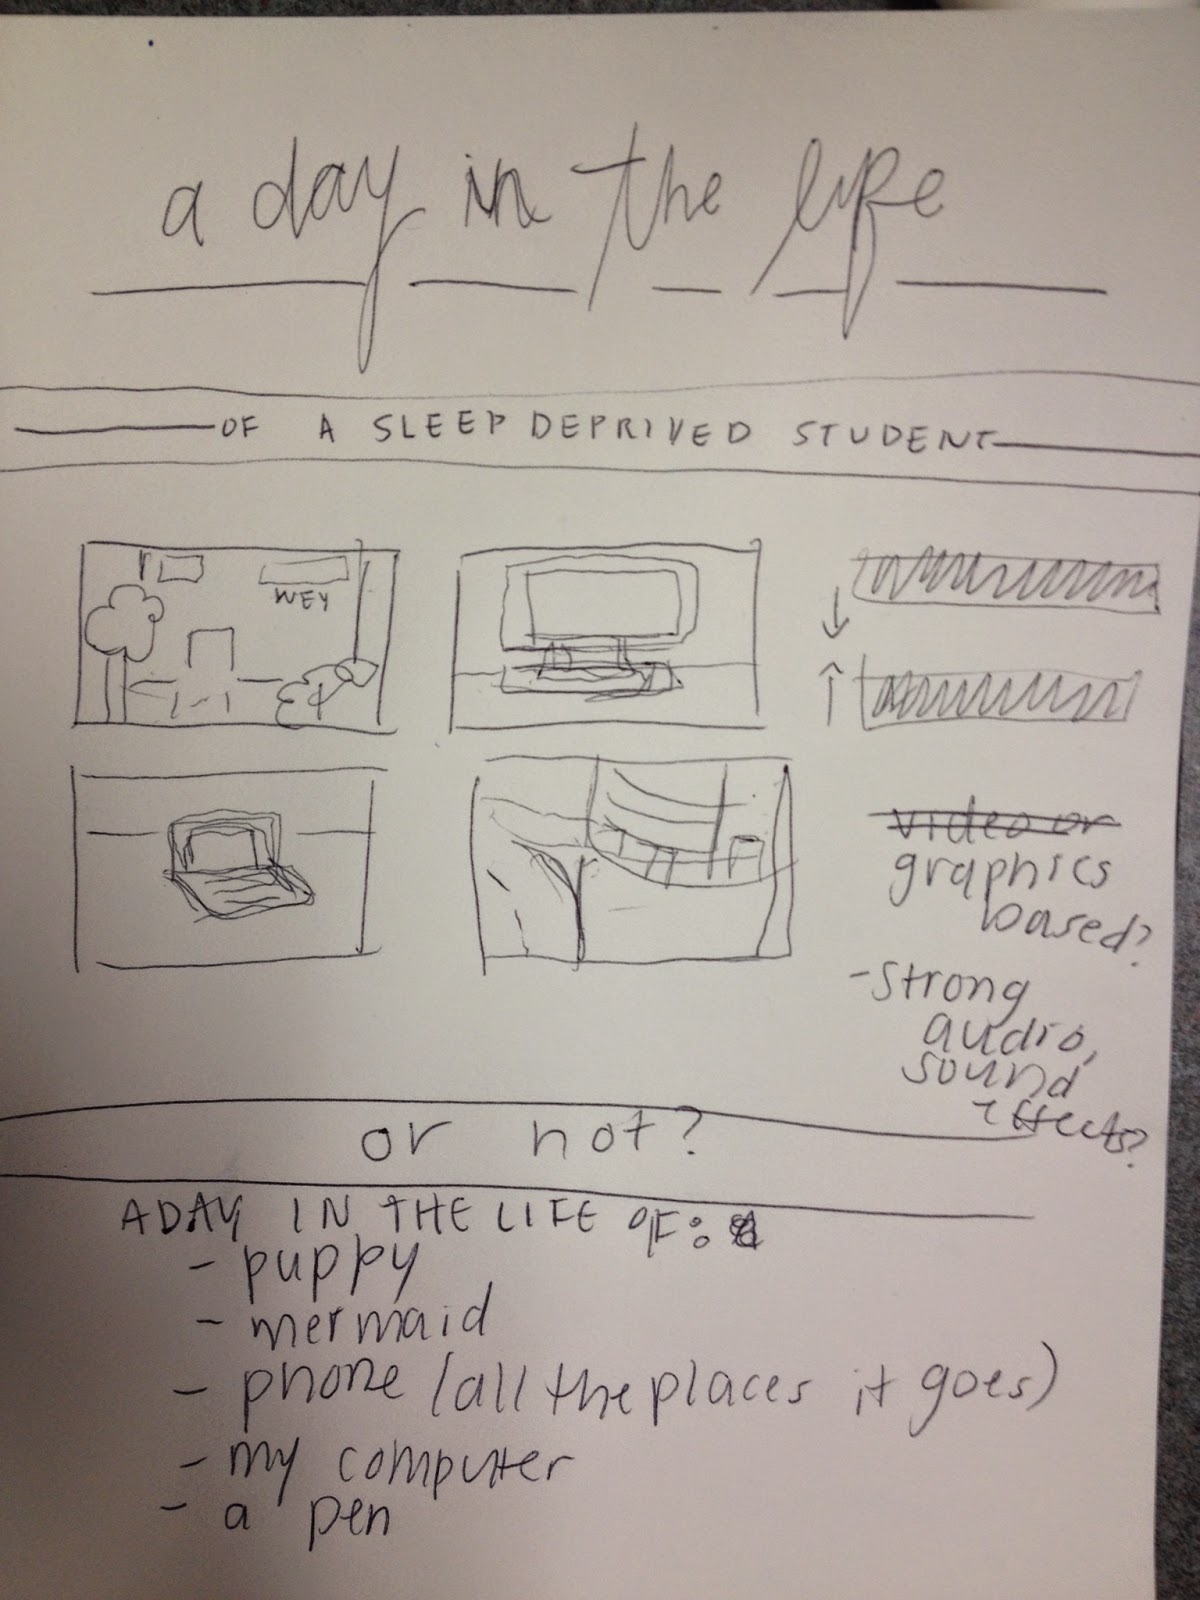 a day in the life
OF A SLEEP DEPRIVED STUDENT
WEY
video or
graphics
based?
-strong
audio,
sound
effects?
or not?
A DAY IN THE LIFE OF:
- puppy
- mermaid
- phone (all the places it goes)
- my computer
- a pen